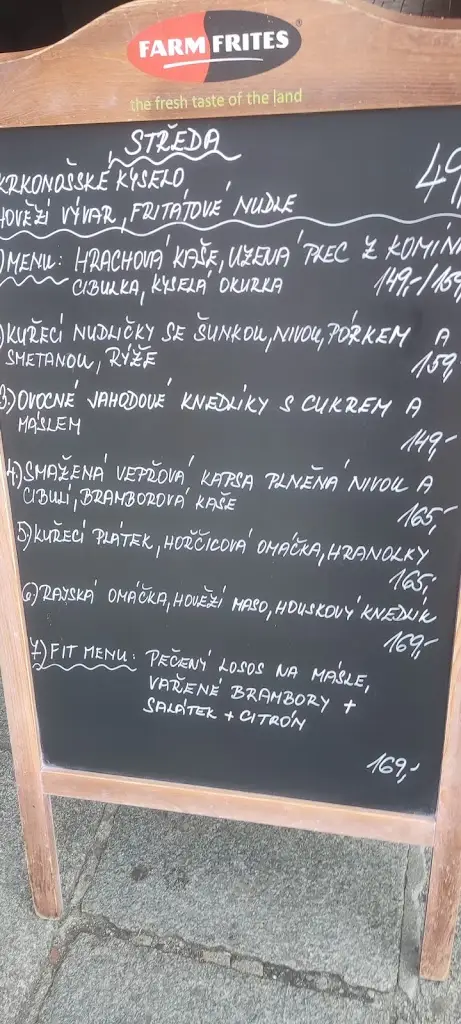 FARM FRITES®
the fresh taste of the land
STŘEDA
KRKONOŠSKÉ KYSELO 49,
HOVĚZÍ VÝVAR, FRITÁTOVÉ NUDLE
)MENU: HRACHOVÁ KAŠE, UZENÁ PLEC Z KOMÍN
CIBULKA, KYSELÁ OKURKA 149,-/159
)KUŘECÍ NUDLIČKY SE ŠUNKOU, NIVOU, PÓRKEM A
SMETANOU, RÝŽE 159,
3)OVOCNÉ JAHODOVÉ KNEDLÍKY S CUKREM A
MÁSLEM 149,-
4)SMAŽENÁ VEPŘOVÁ KAPSA PLNĚNÁ NIVOU A
CIBULÍ, BRAMBOROVÁ KAŠE 165,-
5)KUŘECÍ PLÁTEK, HOŘČICOVÁ OMÁČKA, HRANOLKY
165,-
6)RAJSKÁ OMÁČKA, HOVĚZÍ MASO, HOUSKOVÝ KNEDLÍK
169,-
7)FIT MENU: PEČENÝ LOSOS NA MÁSLE,
VAŘENÉ BRAMBORY +
SALÁTEK + CITRÓN
169,-